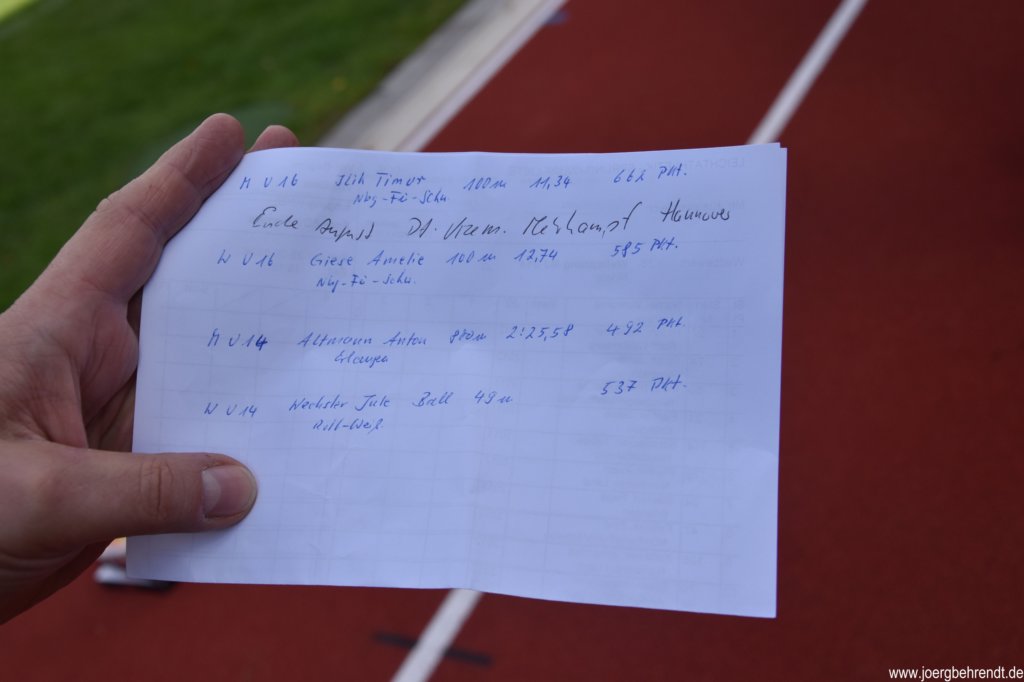 M U 16 Ilih Timur 100 m 11,34 662 Pkt.
Nbg-Fü-Schw.
Ende August Dt. Mehrkampf Hannover
W U 16 Giese Amelie 100 m 12,74 585 Pkt.
Nbg-Fü-Schw.
M U 14 Altmann Anton 800m 2:25,58 492 Pkt.
Erlangen
W U 14 Wechsler Jule Ball 49 m 537 Pkt.
Roth-Weiß.
www.joergbehrendt.de